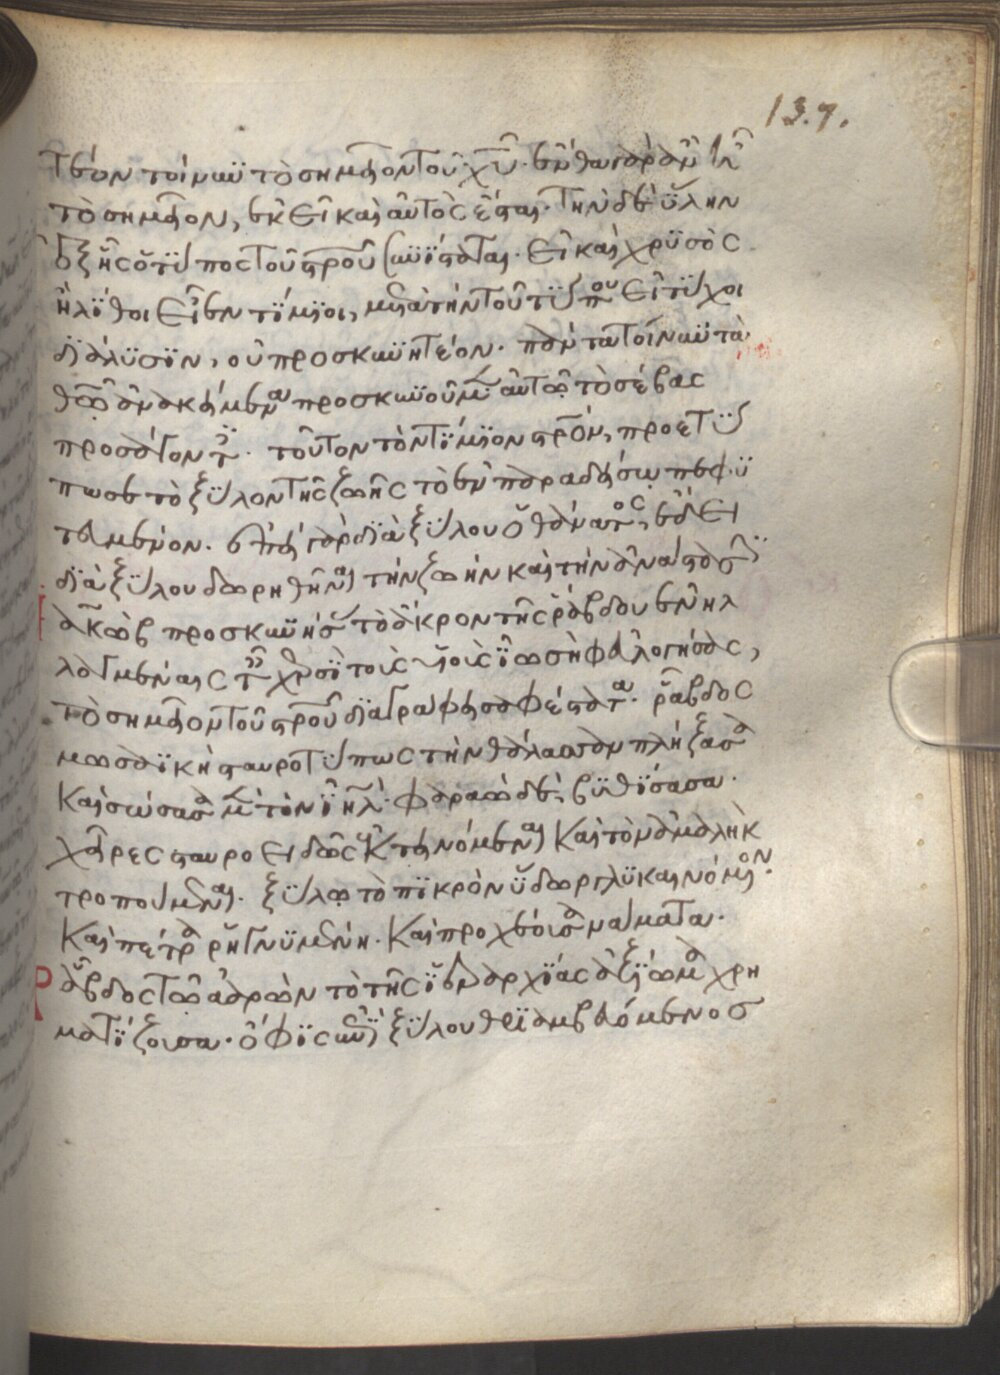 137.
τέον τοίνυν τὸ σημεῖον τοῦ χυ. ἔνθα γὰρ ἂν ᾖ
τὸ σημεῖον, ἐκεῖ καὶ αὐτὸς ἔσται. τὴν δὲ ὕλην
ἐξ ἧς ὁ τύπος τοῦ στρου συνίσταται. εἰ καὶ χρυσὸς
ἢ λίθοι εἶεν τίμιοι, μετὰ τὴν τοῦ τύπου εἰ τύχοι
διάλυσιν, οὐ προσκυνητέον. πάντα τοίνυν τὰ
θῶ ἀνακείμενα προσκυνοῦμεν αὐτῶ τὸ σέβας
προσάγοντες. τοῦτον τὸν τίμιον στρον, προετύ
πωσε τὸ ξύλον τῆς ζωῆς τὸ ἐν παραδείσω πεφυ
τευμένον. ἐπεὶ γὰρ διὰ ξύλου ὁ θάνατος, ἔδει
διὰ ξύλου δωρηθῆναι τὴν ζωὴν καὶ τὴν ἀνάστασιν
ἰακὼβ προσκυνήσας τὸ ἄκρον τῆς ῥάβδου ἐνηλ
λαγμέναις ταῖς χερσὶ τοὺς υἱοὺς ἰωσὴφ εὐλογήσας,
τὸ σημεῖον τοῦ στρου διαγράψας σαφέστατα. ῥάβδος
μωσαϊκὴ σταυροτύπως τὴν θάλασσαν πλήξασα
καὶ σώσασα μὲν τὸν ιηλ. φαραὼ δὲ, βυθίσασα.
χεῖρες σταυροειδῶς ἐκτεινόμεναι καὶ τὸν ἀμαλὴκ
τροπούμεναι. ξύλω τὸ πικρὸν ὕδωρ γλυκαινόμενον.
καὶ πέτρα ῥηγνυμένη. καὶ προχέουσα νάματα.
ῥάβδος τῶ ἀαρὼν τὸ τῆς ἱεραρχίας ἀξίωμα χρη
ματίζουσα. ὄφις ἐπὶ ξύλου θριαμβευόμενος